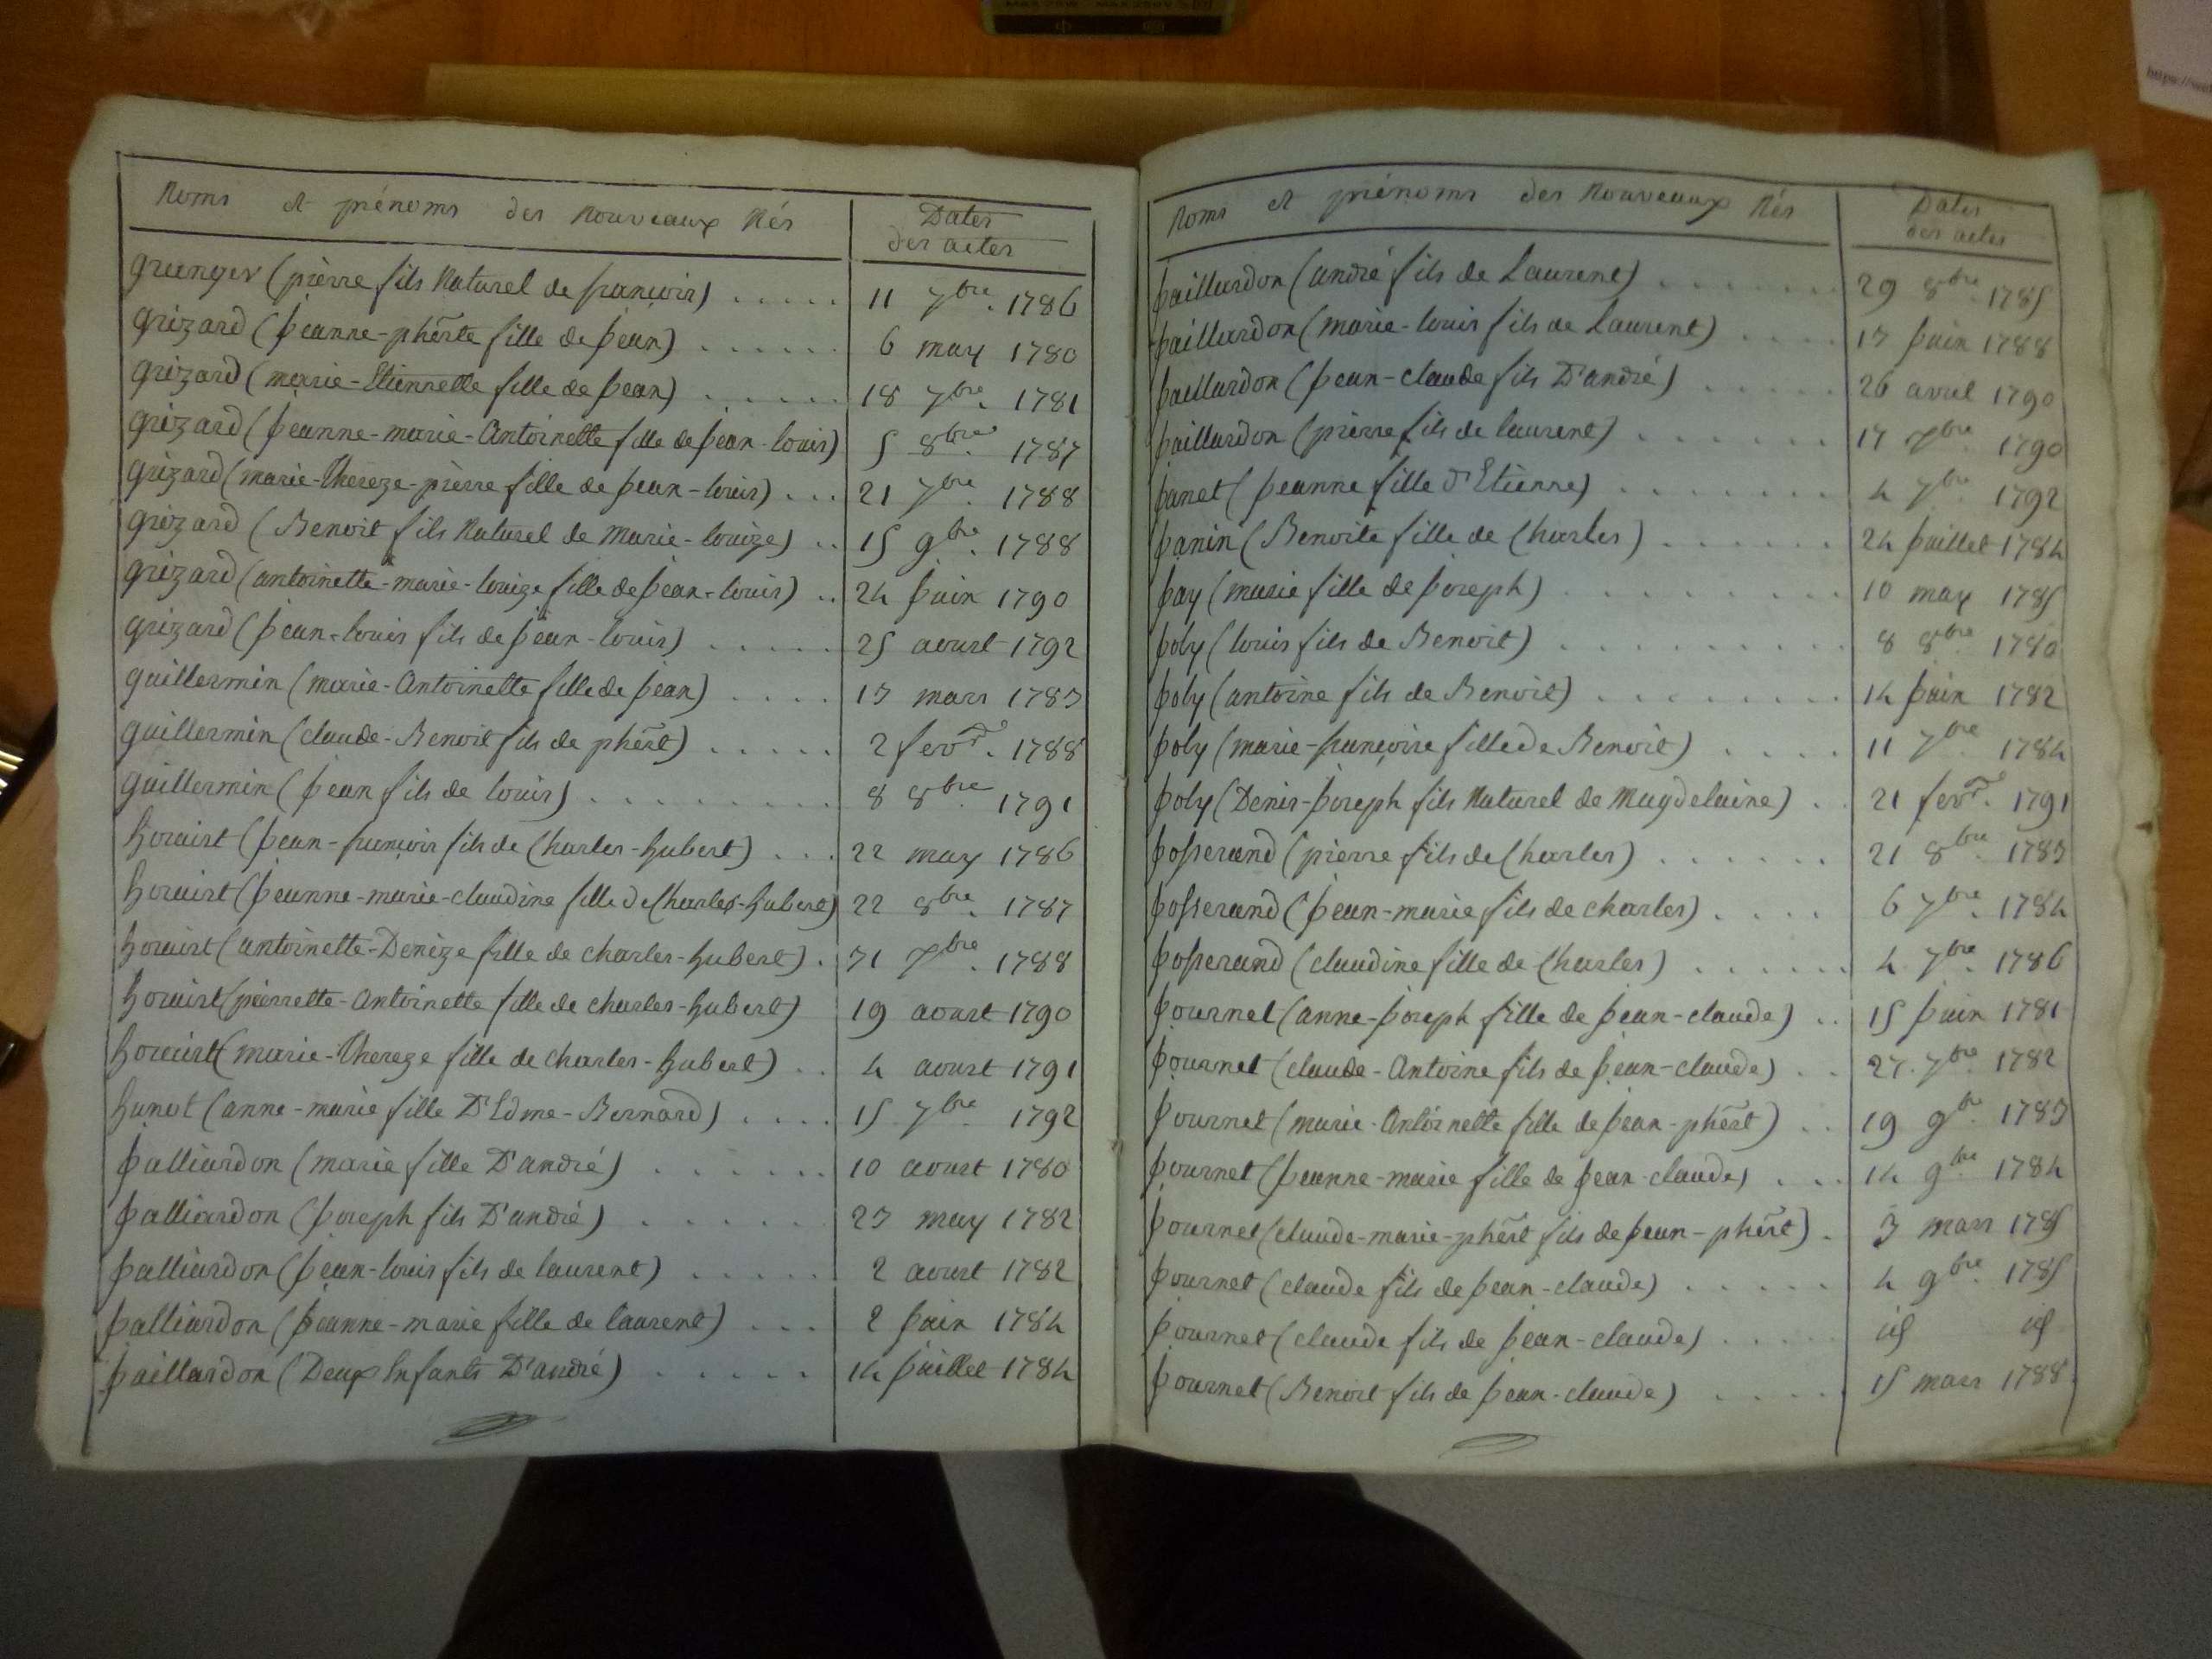 Noms et prénoms des Nouveaux Nés
Dates
des actes
Granger (pierre fils Naturel de françois) ..... 11 7bre. 1786
Grizard (Jeanne-phērte fille de Jean) ...... 6 may 1780
Grizard (marie-Etiennette fille de Jean) ...... 18 7bre. 1781
Grizard (Jeanne-marie-Antoinette fille de Jean-louis) 5 8bre. 1787
Grizard (marie-Thereze-pierre fille de Jean-louis) ... 21 7bre 1788
Grizard (Benoit fils Naturel de Marie-louize) .. 15 9bre. 1788
Grizard (antoinette-marie-louize fille de Jean-louis) .. 24 Juin 1790
Grizard (Jean-louis fils de Jean-louis) ..... 25 aoust 1792
Guillermin (marie-Antoinette fille de Jean) .... 13 mars 1783
Guillermin (claude-Benoit fils de phērt) ..... 2 fevr. 1788
Guillermin (Jean fils de louis) ......... 8 8bre 1791
horaist (Jean-françois fils de Charles-hubert) ... 22 may 1786
horaist (Jeanne-marie-claudine fille de Charles-hubert) 22 8bre. 1787
horaist (antoinette-Denize fille de charles-hubert) . 31 Xbre. 1788
horaist (pierrette-Antoinette fille de charles-hubert) 19 aoust 1790
horaist (marie-Thereze fille de charles-hubert) .. 4 aoust 1791
hunot (anne-marie fille D'Edme-Bernard) .... 15 7bre 1792
Jalliardon (marie fille D'andré) ...... 10 aoust 1780
Jalliardon (Joseph fils D'andré) ...... 23 may 1782
Jalliardon (Jean-louis fils de laurent) ..... 2 aoust 1782
Jalliardon (Jeanne-marie fille de laurent) ... 2 Juin 1784
Jaillardon (Deux Enfants D'andré) ..... 14 Juillet 1784
Noms et prénoms des Nouveaux Nés
Dates
des actes
Jaillardon (andré fils de Laurent) ....... 29 8bre. 1785
Jaillardon (marie-louis fils de Laurent) .... 13 Juin 1788
Jaillardon (Jean-claude fils D'andré) ..... 26 avril 1790
Jaillardon (pierre fils de laurent) ...... 17 Xbre. 1790
Janet (Jeanne fille d'Etienne) ........ 4 7bre. 1792
Janin (Benoite fille de Charles) ...... 24 Juillet 1784
Jay (marie fille de Joseph) ......... 10 may 1785
Joly (louis fils de Benoit) ......... 8 8bre. 1780
Joly (antoine fils de Benoit) ........ 14 Juin 1782
Joly (marie-françoise fille de Benoit) .... 11 7bre. 1784
Joly (Denis-Joseph fils Naturel de Magdelaine) .. 21 fevr. 1791
Josserand (pierre fils de Charles) ...... 21 8bre. 1783
Josserand (Jean-marie fils de charles) .... 6 7bre. 1784
Josserand (claudine fille de Charles) ...... 4 7bre. 1786
Journet (anne-Joseph fille de Jean-claude) .. 15 Juin 1781
Journet (claude-Antoine fils de Jean-claude) .. 27 7bre. 1782
Journet (marie-Antoinette fille de Jean-phērt) .. 19 9bre. 1783
Journet (Jeanne-marie fille de Jean-claude) ... 14 9bre. 1784
Journet (claude-marie-phērt fils de Jean-phērt) . 3 mars 1785
Journet (claude fils de Jean-claude) ..... 4 9bre. 1785
Journet (claude fils de Jean-claude) .....
Journet (Benoit fils de Jean-claude) .... 15 mars 1788